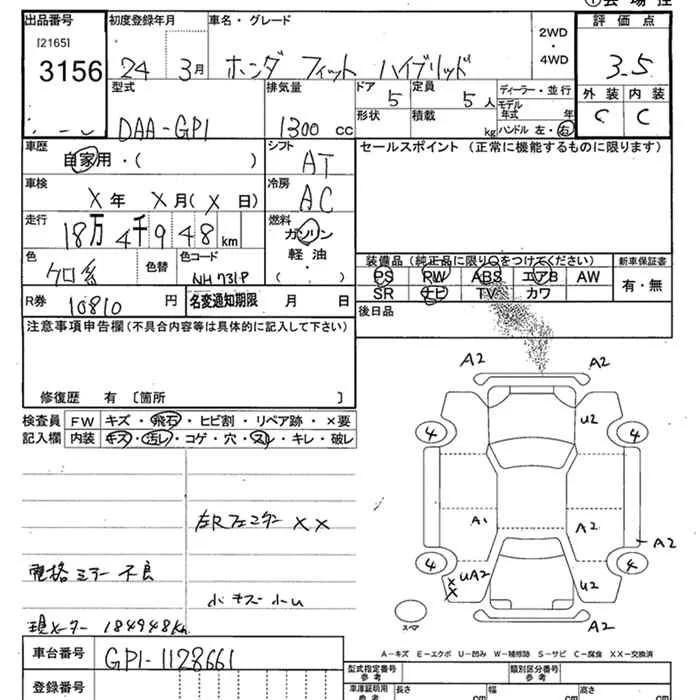 ①会場控
出品番号 初度登録年月 車名・グレード 2WD・4WD 評価点
[2165]
3156 24 3月 ホンダ フィット ハイブリッド 3.5
型式 排気量 ドア 5 定員 5人 ディーラー・並行 外装 内装
モデル年式 年
DAA-GP1 1300 cc 形状 積載 kg ハンドル 左・右 C C
車歴 自家用・( ) シフト AT セールスポイント (正常に機能するものに限ります)
車検 X年 X月(X日) 冷房 AC
走行 18万4千948km 燃料 ガソリン
軽油
・( )
色 クロ系 色替 色コード NH731P
装備品(純正品に限り○をつけてください) 新車保証書
PS PW ABS エアB AW 有・無
SR ナビ TV カワ
R券 10810円 名変通知期限 月 日
後日品
注意事項申告欄(不具合内容等は具体的に記入して下さい)
修復歴 有 〔箇所 〕
検査員 FW キズ・飛石・ヒビ割・リペア跡・×要
記入欄 内装 キズ・汚レ・コゲ・穴・スレ・キレ・破レ
A2 A2
U2
4 4
左Rフェンダー XX
A1 A2
A2
4 4
格ミラー不良
UA2 XX U2
小キズ小U
現メーター 184948Km
スペア
A2
A-キズ E-エクボ U-凹み W-補修跡 S-サビ C-腐食 XX-交換済
車台番号 GP1-1128661
型式指定番号 類別区分番号
参考 参考
登録番号
車庫証明用 長さ cm 幅 cm 高さ cm